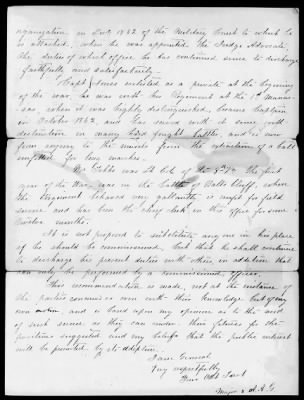 organization in Oct 1862 of the Military Court to which he
is attached, when he was appointed the Judge Advocate,
the duties of which office he has continued since to discharge
faithfully and satisfactorily.
Capt Jones enlisted as a private at the beginning
of the war, he was with his Regiment at the 1st Manas-
sas where it was highly distinguished, became Captain
in October 1862, and has served with it since with
distinction in many hard fought battles and is now
from injury to the muscles from the extraction of a ball
unfitted for long marches.
Mr. Gibbs was Lt Col of the The first
year of the War, was in the battle of Balls Bluff, where
the Regiment behaved very gallantly, is unfit for field
service and has been the chief clerk in this office for some
twelve months.
It is not proposed to substitute any one in his place
if he should be commissioned, but that he shall continue
to discharge his present duties with others in addition that
can only be performed by a commissioned officer.
This recommendation is made, not at the instance of
the parties concerned or even with their knowledge but of my
own motion, and is based upon my opinion as to the need
of such service as they can render, their fitness for the
positions suggested and my belief that the public interest
will be promoted by its adoption.
I am General
Very respectfully
Your Obt Servt
Major & A.A.G